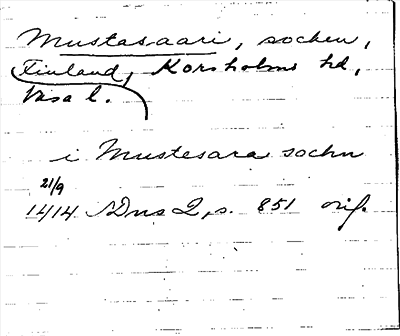 Mustasaari, socken,
Finland, Korsholms hd,
Vasa l.
i Mustesara sochn
21/9
1414 SDns 2, s. 851 orig.